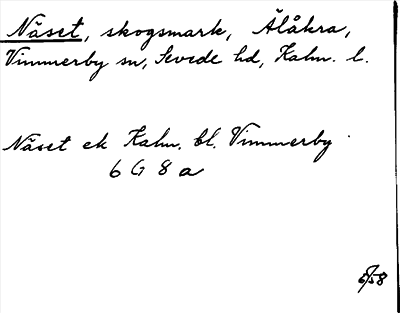 Näset, skogsmark, Älåkra,
Vimmerby sn, Sevede hd, Kalm. l.
Näset ek Kalm. bl. Vimmerby
6 G 8 a
5/58